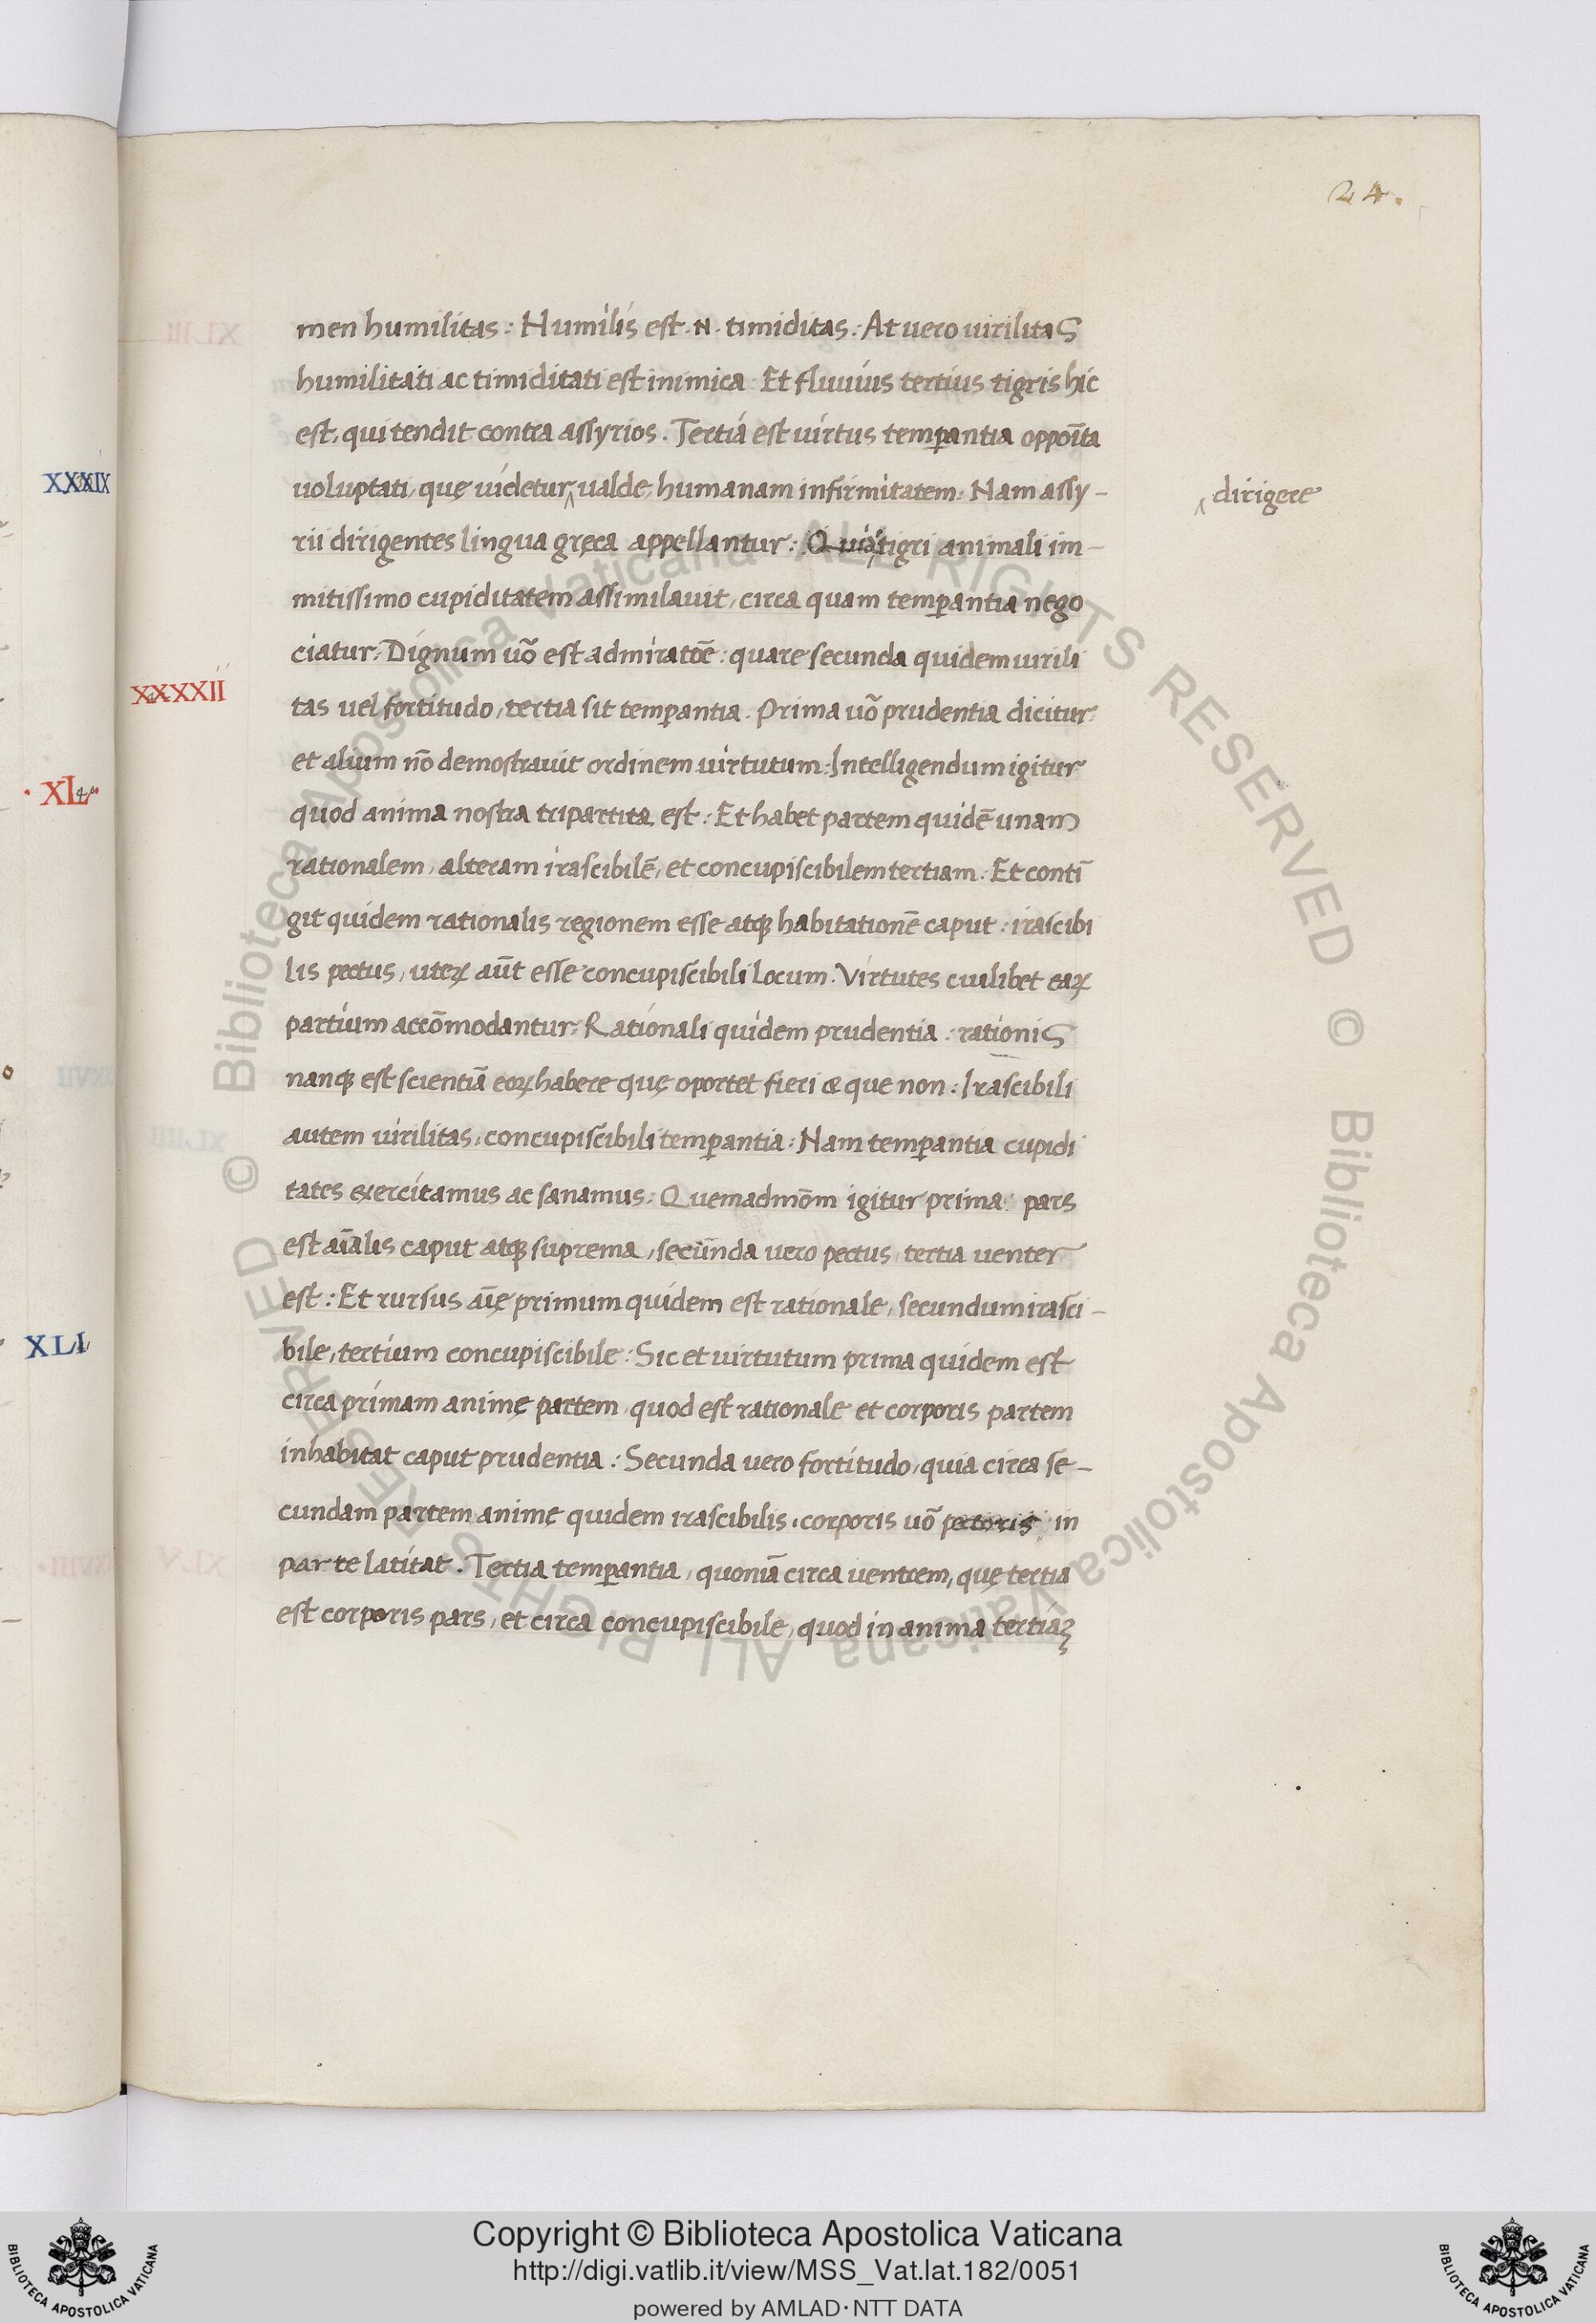 24.
men humilitas: Humilis est .N. timiditas: At vero uirilitas
humilitati ac timiditati est inimica. Et fluuius tertius tigris hic
est, qui tendit contra assyrios. Tertia est uirtus temꝑantia oppoīta
uoluptati, quę uidetur ‸ ualde, humanam infirmitatem: Nam assy-
‸ dirigere
rii dirigentes lingua gręca appellantur: tigri animali im-
mitissimo cupiditatem assimilauit, circa quam temꝑantia nego
ciatur: Dignum uō est admiratōe: quare secunda quidem uirili
XXXXII
tas uel fortitudo, tertia sit temꝑantia. Prima uō prudentia dicitur:
et alium nō demostrauit ordinem uirtutum: Intelligendum igitur
quod anima nostra tripartita est: Et habet partem quidē unam
rationalem, alteram irascibilē, et concupiscibilem tertiam: Et contī
git quidem rationalis regionem esse atqꝫ habitationē caput: irascibi
lis pectus, uteꝝ aūt esse concupiscibili locum. Virtutes cuilibet eaꝝ
partium accōmodantur: Rationali quidem prudentia: rationis
nanqꝫ est scientiā eoꝝ habere quę oportet fieri & que non: Irascibili
autem uirilitas, concupiscibili temꝑantia: Nam temꝑantia cupidi
tates exercitamus ac sanamus: Quemadmōm igitur prima pars
est aīalis caput atqꝫ suprema, secunda uero pectus, tertia uenter
est: Et rursus aīę primum quidem est rationale, secundum irasci-
bile, tertium concupiscibile: Sic et uirtutum prima quidem est
circa primam animę partem, quod est rationale et corporis partem
inhabitat caput prudentia: Secunda uero fortitudo, quia circa se-
cundam partem animę quidem irascibilis, corporis uō pectoris in
parte latitat. Tertia temꝑantia, quoniā circa uentrem, quę tertia
est corporis pars, et circa concupiscibile, quod in anima tertiaꝫ
XXXIX
XL
XLI
© Biblioteca Apostolica Vaticana ALL RIGHTS RESERVED
© Biblioteca Apostolica Vaticana ALL RIGHTS RESERVED
Copyright © Biblioteca Apostolica Vaticana
http://digi.vatlib.it/view/MSS_Vat.lat.182/0051
powered by AMLAD·NTT DATA
BIBLIOTECA APOSTOLICA VATICANA
BIBLIOTECA APOSTOLICA VATICANA